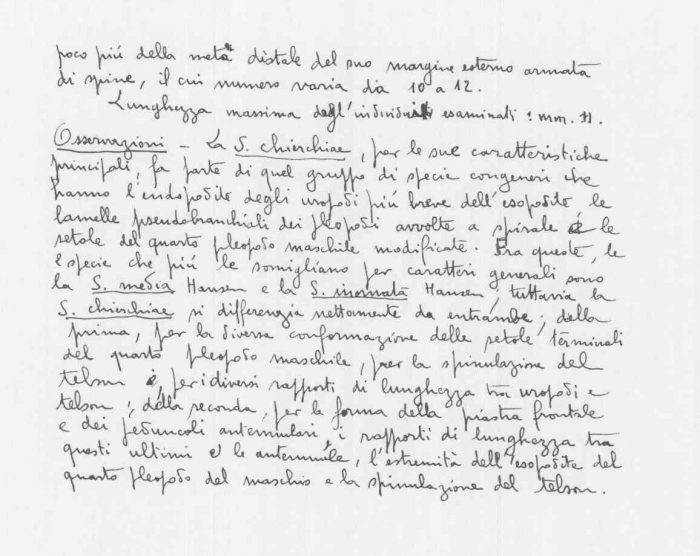 poco più della metà distale del suo margine esterno armata
di spine, il cui numero varia da 10 a 12.
Lunghezza massima degl'individui esaminati: mm. 11.
Osservazioni - La S. chierchiae, per le sue caratteristiche
principali, fa parte di quel gruppo di specie congeneri che
hanno l'endopodite degli uropodi più breve dell'esopodite le
lamelle pseudobranchiali dei pleopodi avvolte a spirale e le
setole del quarto pleopodo maschile modificate. Fra queste, le
2 specie che più le somigliano per caratteri generali sono
la S. media Hansen e la S. inornata Hansen, tuttavia la
S. chierchiae si differenzia nettamente da entrambe; della
prima, per la diversa conformazione delle setole terminali
del quarto pleopodo maschile, per la spinulazione del
telson e, per i diversi rapporti di lunghezza tra uropodi e
telson; della seconda, per la forma della piastra frontale
e dei peduncoli antennulari, i rapporti di lunghezza tra
questi ultimi e le antennule, l'estremità dell'esopodite del
quarto pleopodo del maschio e la spinulazione del telson.